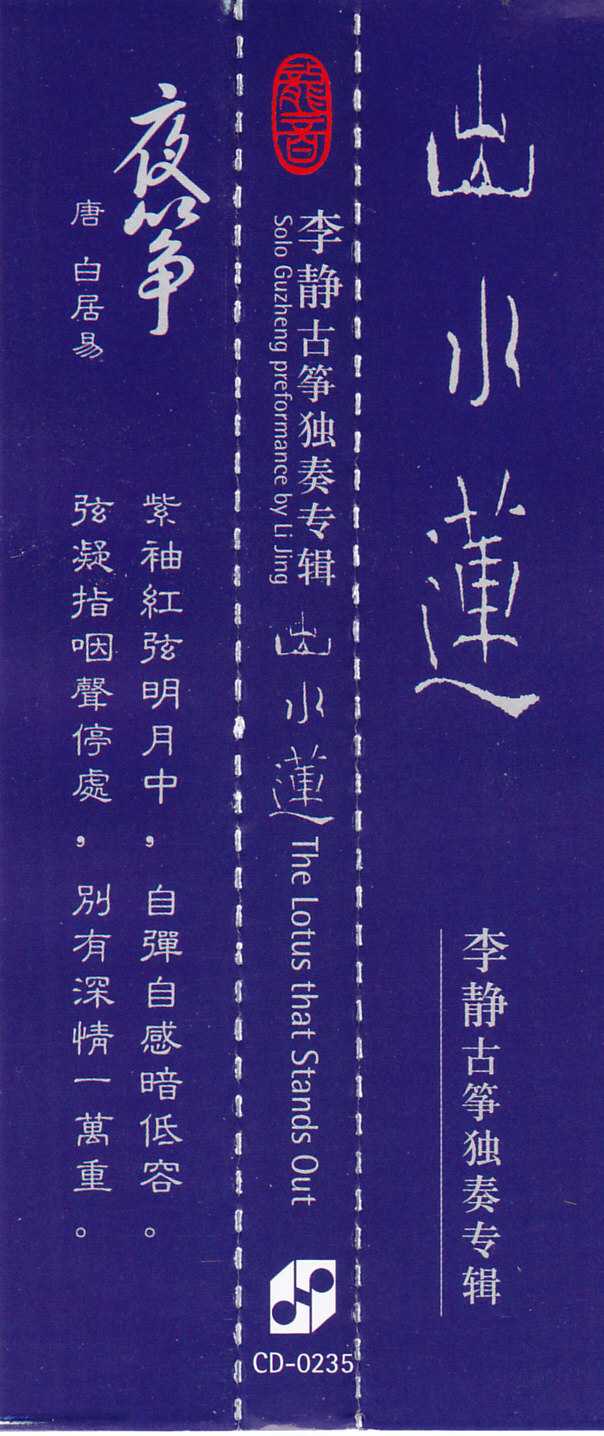 出水蓮
李静古筝独奏专辑
龍音
李静古筝独奏专辑
Solo Guzheng preformance by Li Jing
出水蓮
The Lotus that Stands Out
CD-0235
夜筝
唐 白居易
紫袖紅弦明月中，自彈自感暗低容。
弦凝指咽聲停處，別有深情一萬重。